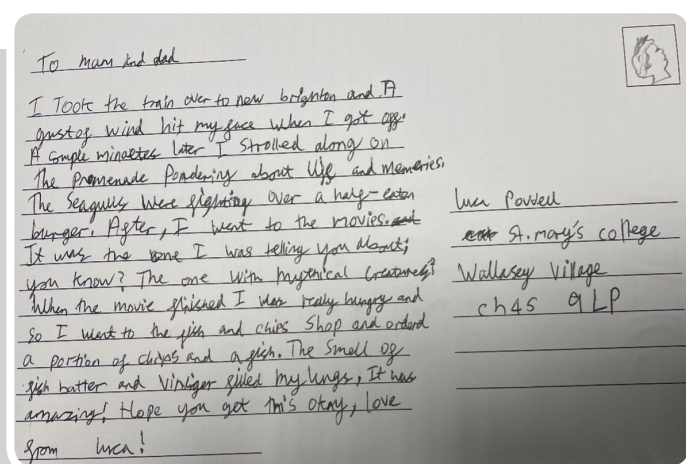 To mam and dad
I Took the train over to new brighton and A
gust of wind hit my face When I got off.
A couple minaetes later I Strolled along on
The Promenade Pondering about life and memeries.
The Seagulls Were fighting over a half-eaten
burger. After, I went to the movies.
It was the one I was telling you about;
you know? The one with mythical Creatures?
When the movie finished I was realy hungry and
So I went to the fish and chips Shop and orderd
a portion of chips and a fish. The Smell of
fish batter and viniger filled my lungs, It was
amazing! Hope you get this okay, love
from luca!
luca Powell
St. mary's college
Wallasey Village
ch45 9LP